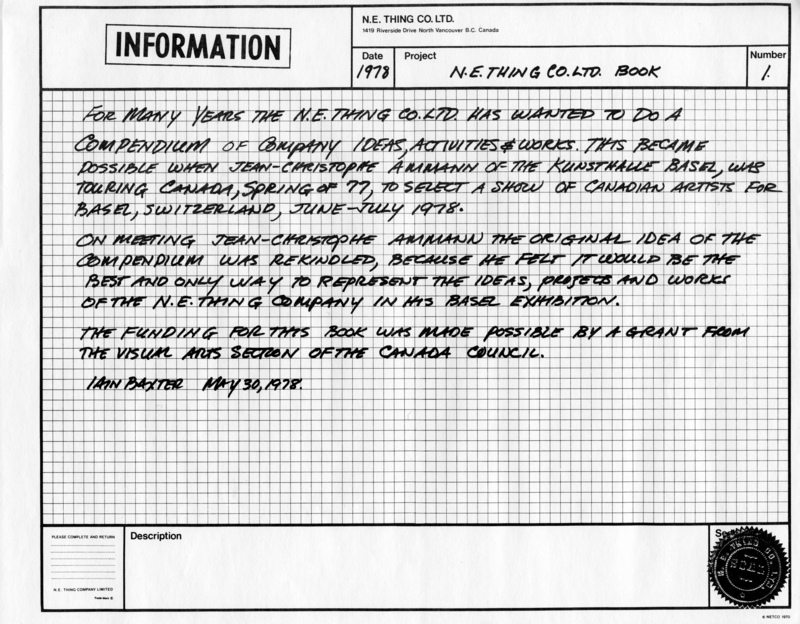 INFORMATION
N.E. THING CO. LTD.
1419 Riverside Drive North Vancouver B.C. Canada
Date
1978
Project
N.E. THING CO. LTD. BOOK
Number
1.
FOR MANY YEARS THE N.E. THING CO. LTD. HAS WANTED TO DO A
COMPENDIUM OF COMPANY IDEAS, ACTIVITIES & WORKS. THIS BECAME
POSSIBLE WHEN JEAN-CHRISTOPHE AMMANN OF THE KUNSTHALLE BASEL, WAS
TOURING CANADA, SPRING OF 77, TO SELECT A SHOW OF CANADIAN ARTISTS FOR
BASEL, SWITZERLAND, JUNE-JULY 1978.
ON MEETING JEAN-CHRISTOPHE AMMANN THE ORIGINAL IDEA OF THE
COMPENDIUM WAS REKINDLED, BECAUSE HE FELT IT WOULD BE THE
BEST AND ONLY WAY TO REPRESENT THE IDEAS, PROJECTS AND WORKS
OF THE N.E. THING COMPANY IN HIS BASEL EXHIBITION.
THE FUNDING FOR THIS BOOK WAS MADE POSSIBLE BY A GRANT FROM
THE VISUAL ARTS SECTION OF THE CANADA COUNCIL.
IAIN BAXTER MAY 30, 1978.
PLEASE COMPLETE AND RETURN
N.E. THING COMPANY LIMITED
Trade Mark ®
Description
N. E. THING CO. LTD.
SEAL
© NETCO 1970